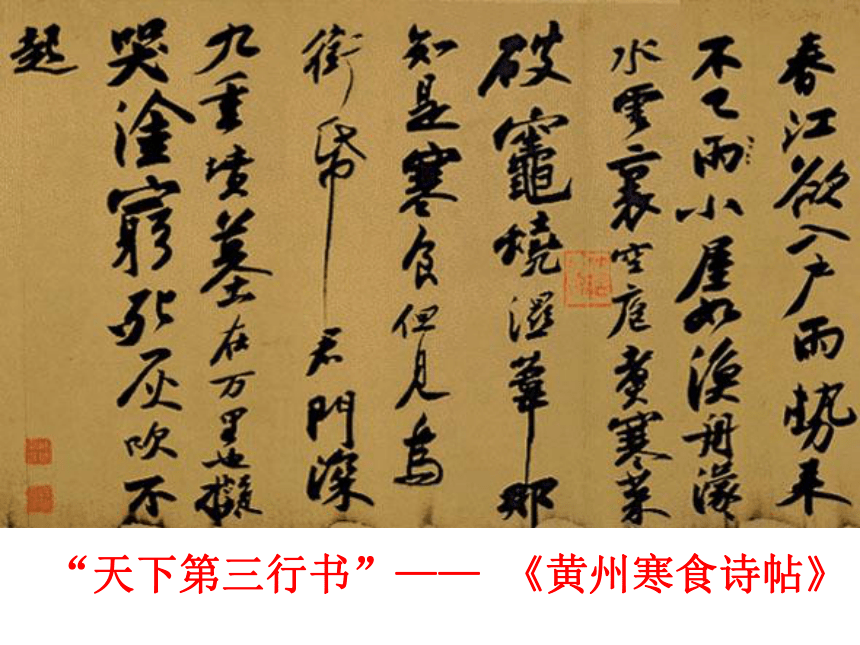 春江欲入户雨势来
不已雨小屋如渔舟濛
水云里空庖煮寒菜
破竈烧湿苇那
知是寒食但见乌
衔帋君门深
九重坟墓在万里也拟
哭涂穷死灰吹不
起
“天下第三行书”—— 《黄州寒食诗帖》